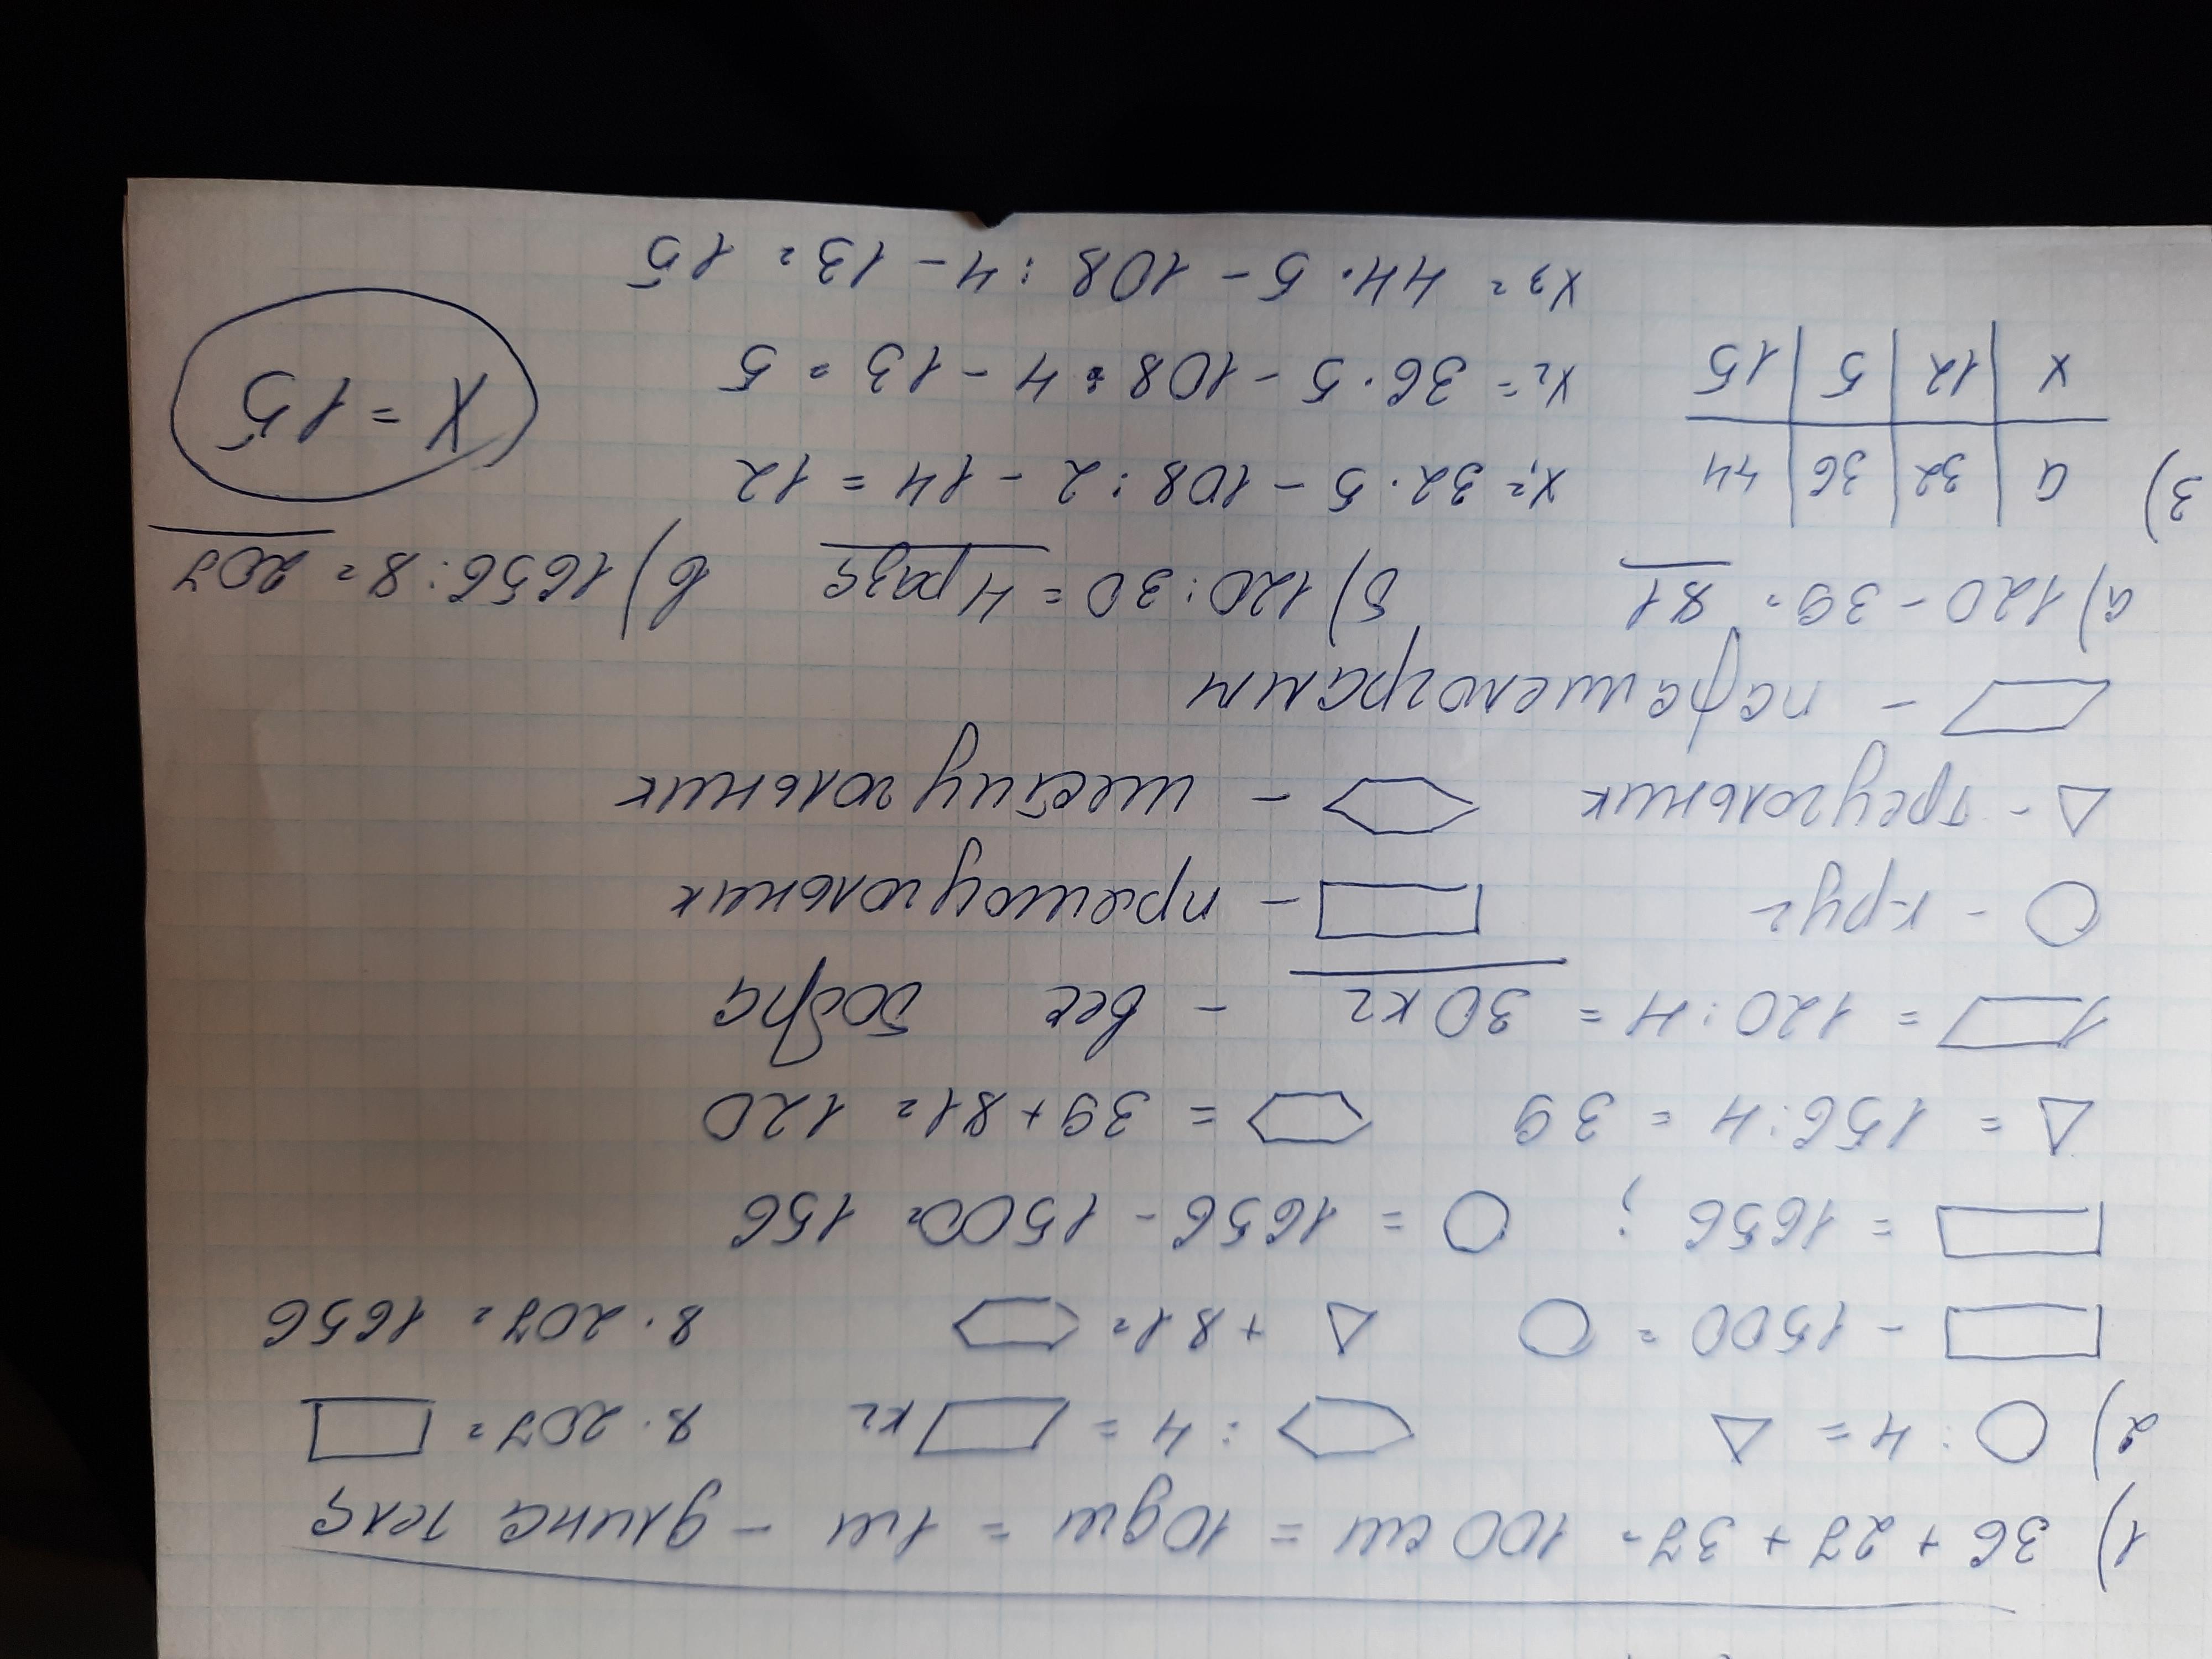 1) 36 + 27 + 37 = 100 см = 10 дм = 1 м - длина тела
2) ○ : 4 = △ ⬡ : 4 = ▱ кг 8 · 207 = ▭
▭ - 1500 = ○ △ + 81 = ⬡ 8 · 207 = 1656
▭ = 1656 ; ○ = 1656 - 1500 = 156
△ = 156 : 4 = 39 ⬡ = 39 + 81 = 120
▱ = 120 : 4 = 30 кг - вес бобра
○ - круг ▭ - прямоугольник
△ - треугольник ⬡ - шестиугольник
▱ - параллелограмм
а) 120 - 39 = 81 б) 120 : 30 = 4 раза в) 1656 : 8 = 207
3) a | 32 | 36 | 44 x₁ = 32 · 5 - 108 : 2 - 14 = 12
x | 12 | 5 | 15 x₂ = 36 · 5 - 108 : 4 - 13 = 5
x₃ = 44 · 5 - 108 : 4 - 13 = 15
x = 15